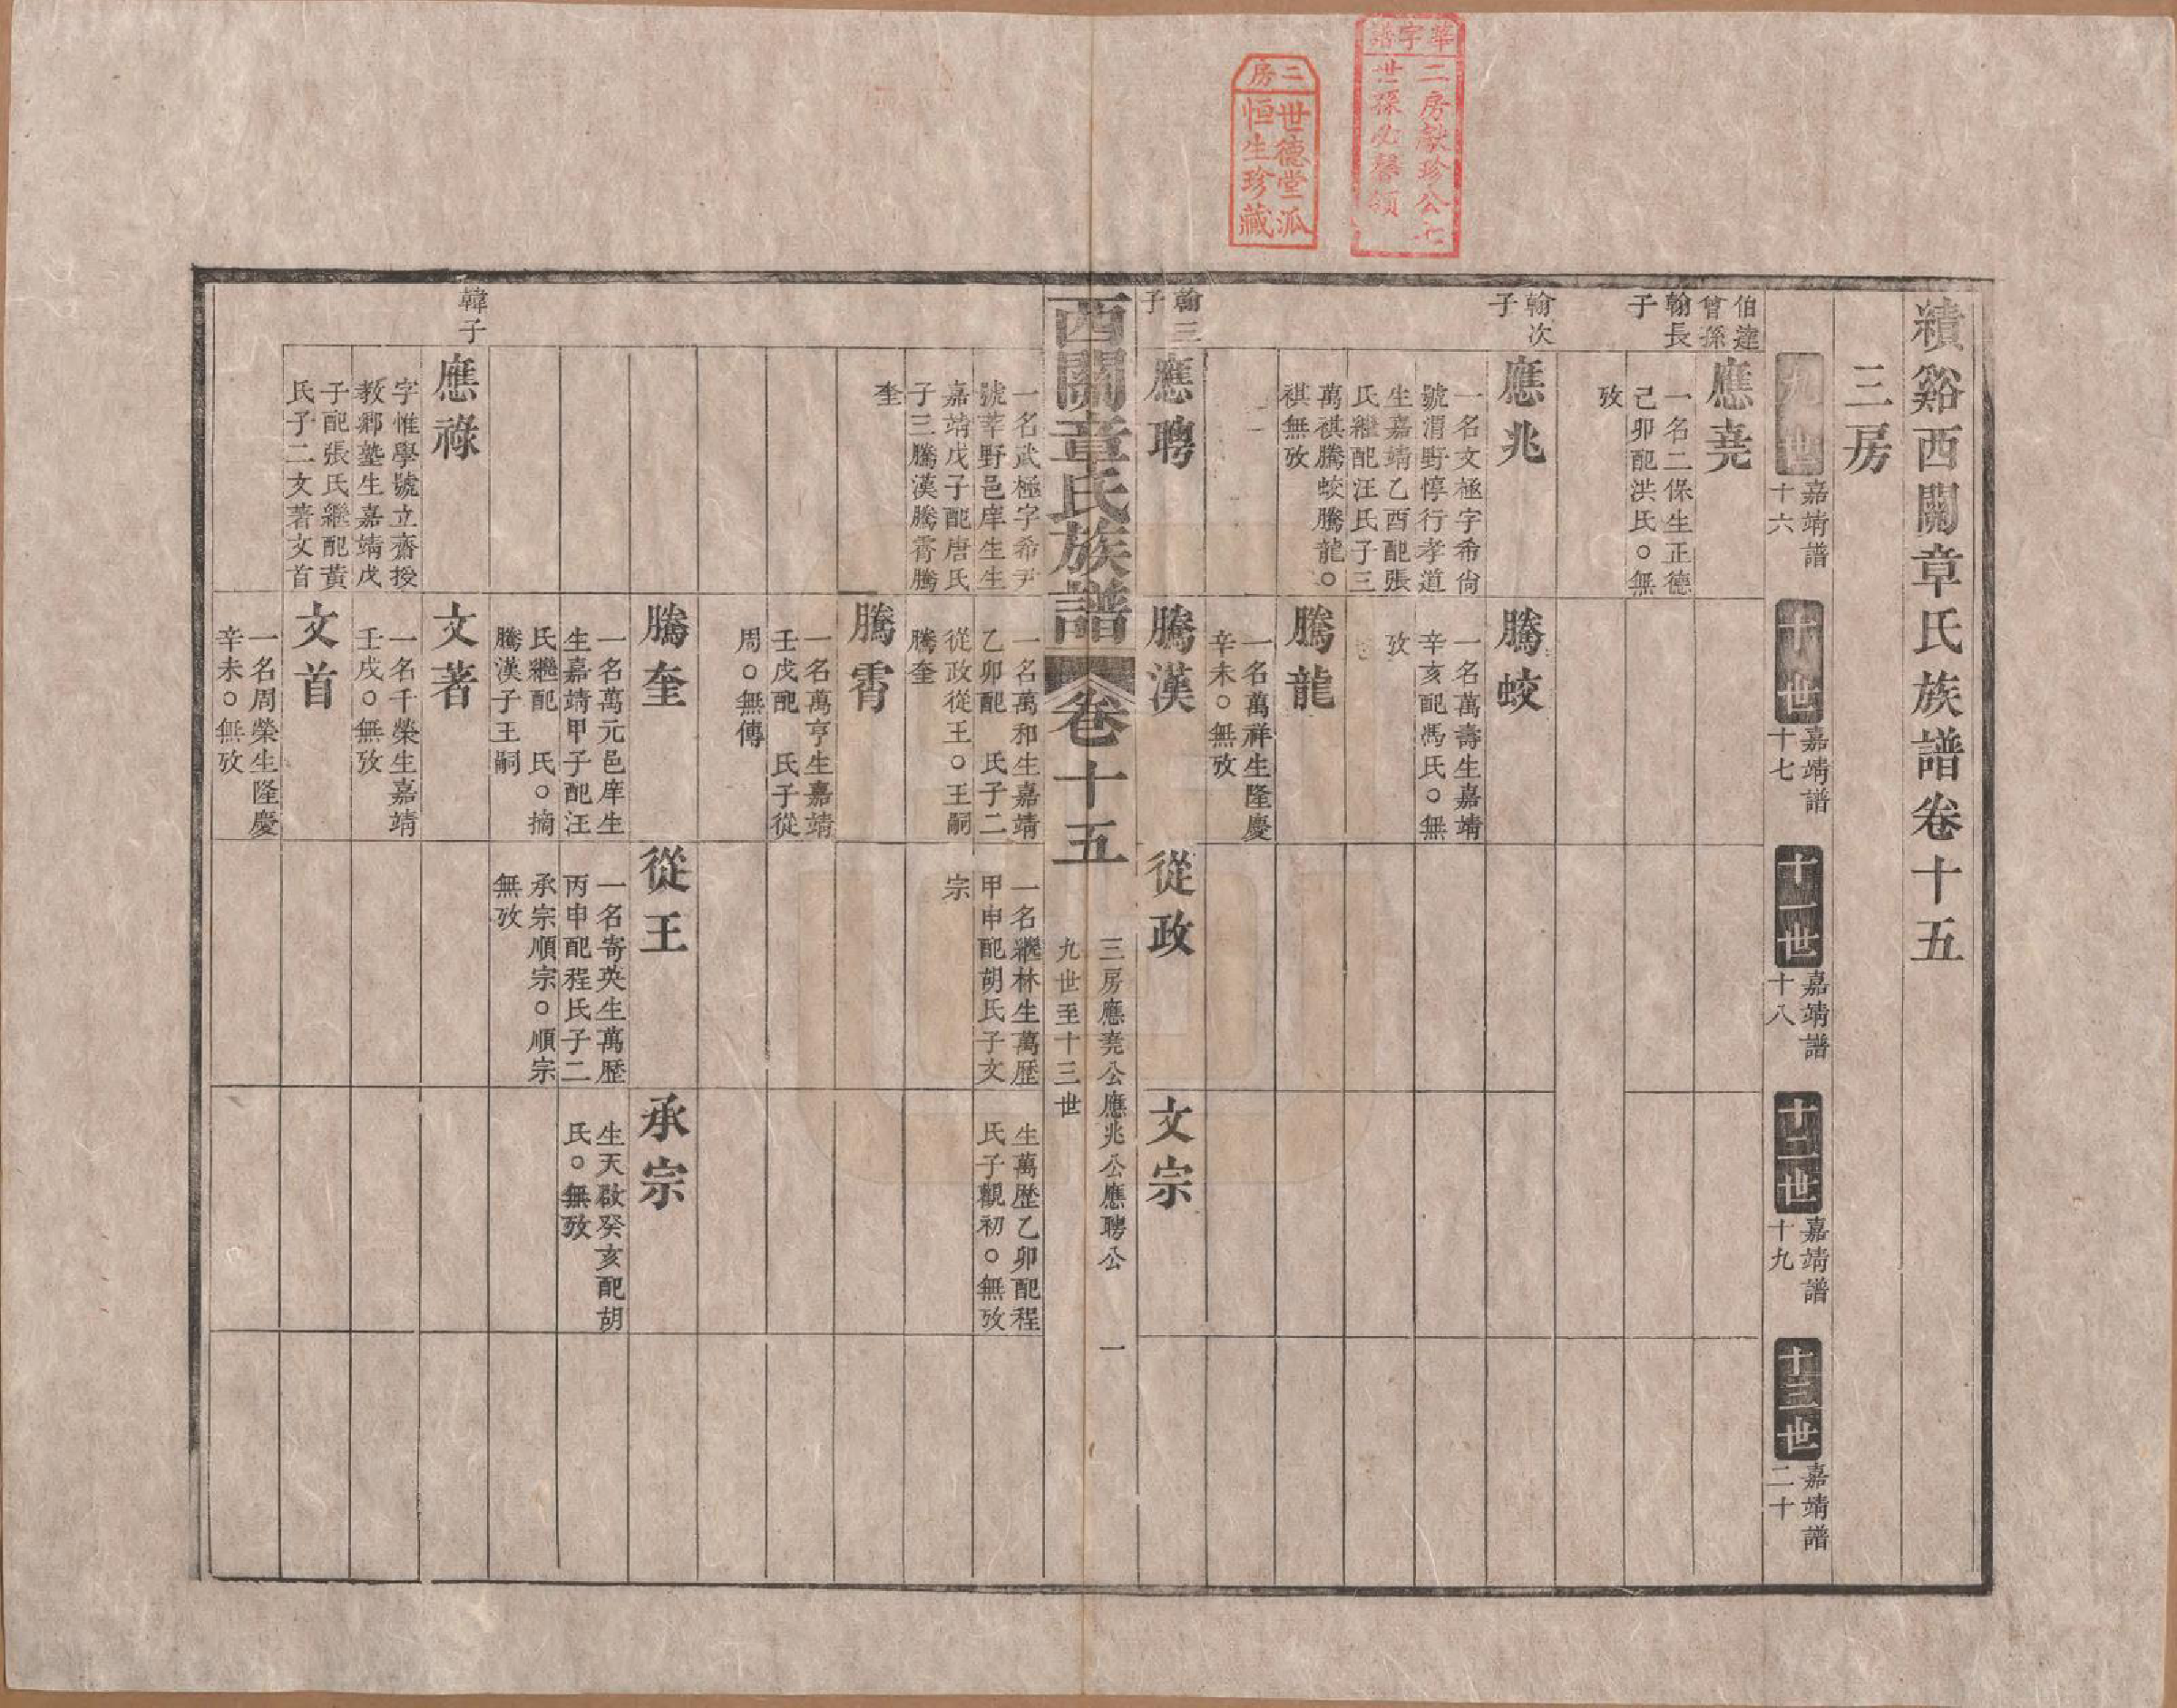 華字譜
二房獻珍公七
世孫必馨領
三房
世德堂派
恒生珍藏
績谿西關章氏族譜卷十五
三房
九世
嘉靖譜
十六
十世
嘉靖譜
十七
十一世
嘉靖譜
十八
十二世
嘉靖譜
十九
十三世
嘉靖譜
二十
伯達
曾孫
翰長
子
應堯
一名二保生正德
己卯配洪氏○無
攷
翰次
子
應兆
一名文極字希尙
號渭野惇行孝道
生嘉靖乙酉配張
氏繼配汪氏子三
萬祺騰蛟騰龍○
祺無攷
騰蛟
一名萬壽生嘉靖
辛亥配馮氏○無
攷
騰龍
一名萬祥生隆慶
辛未○無攷
翰三
子
應聘
一名武極字希尹
號莘野邑庠生生
嘉靖戊子配唐氏
子三騰漢騰霄騰
奎
騰漢
一名萬和生嘉靖
乙卯配 氏子二
從政從王○王嗣
騰奎
從政
一名繼林生萬歷
甲申配胡氏子文
宗
文宗
生萬歷乙卯配程
氏子觀初○無攷
西關章氏族譜
卷十五
三房應堯公應兆公應聘公
九世至十三世
一
騰霄
一名萬亨生嘉靖
壬戌配 氏子從
周○無傳
騰奎
一名萬元邑庠生
生嘉靖甲子配汪
氏繼配 氏○摘
騰漢子王嗣
從王
一名寄英生萬歷
丙申配程氏子二
承宗順宗○順宗
無攷
承宗
生天啟癸亥配胡
氏○無攷
韓子
應祿
字惟學號立齋授
教鄉塾生嘉靖戊
子配張氏繼配黃
氏子二文著文首
文著
一名千榮生嘉靖
壬戌○無攷
文首
一名周榮生隆慶
辛未○無攷